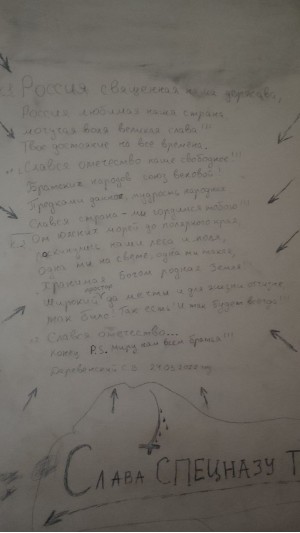 Россия священная наша держава,
Россия любимая наша страна
могучая воля великая слава!!!
Твоё достояние на все времена.
Слався отечество наше свободное!!!
Братских народов союз вековой!
Предками данная, мудрость народная
Слався страна - мы гордимся тобою!!!
От южних морей до полярного края,
раскинулись наши леса и поля,
Одна ты на свете, одна ты такая,
Хранимая Богом родная Земля
Широкий простор да мечты и для жизни
так было! Так есть! И так будет всегда!!!
Слався отечество...
Конец P.S. Миру вам всем братья!!!
СЛАВА СПЕЦНАЗУ